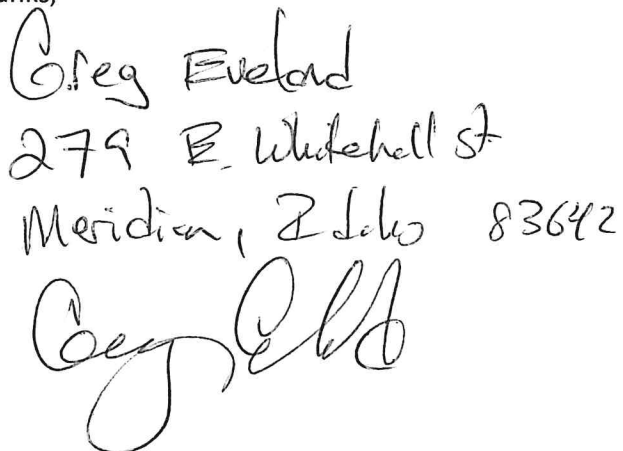 Greg Eveland
279 E. Whitehall St
Meridian, Idaho 83642